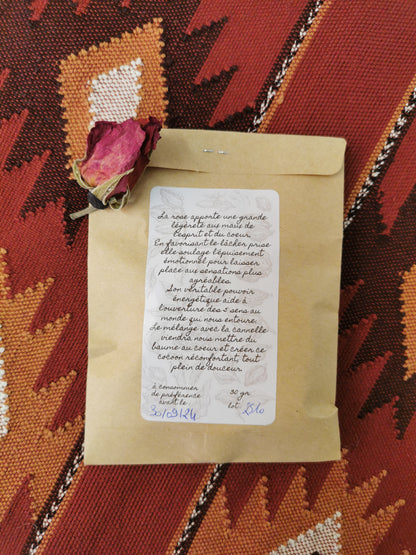 La rose apporte une grande
légèreté aux maux de
l'esprit et du coeur.
En favorisant le lâcher prise
elle soulage l'épuisement
émotionnel pour laisser
place aux sensations plus
agréables.
Son véritable pouvoir
énergétique aide à
l'ouverture des 5 sens au
monde qui nous entoure.
Le mélange avec la cannelle
viendra nous mettre du
baume au coeur et créer ce
cocoon réconfortant, tout
plein de douceur.
à consommer
de préférence
avant le
30/09/24
30 gr
lot: